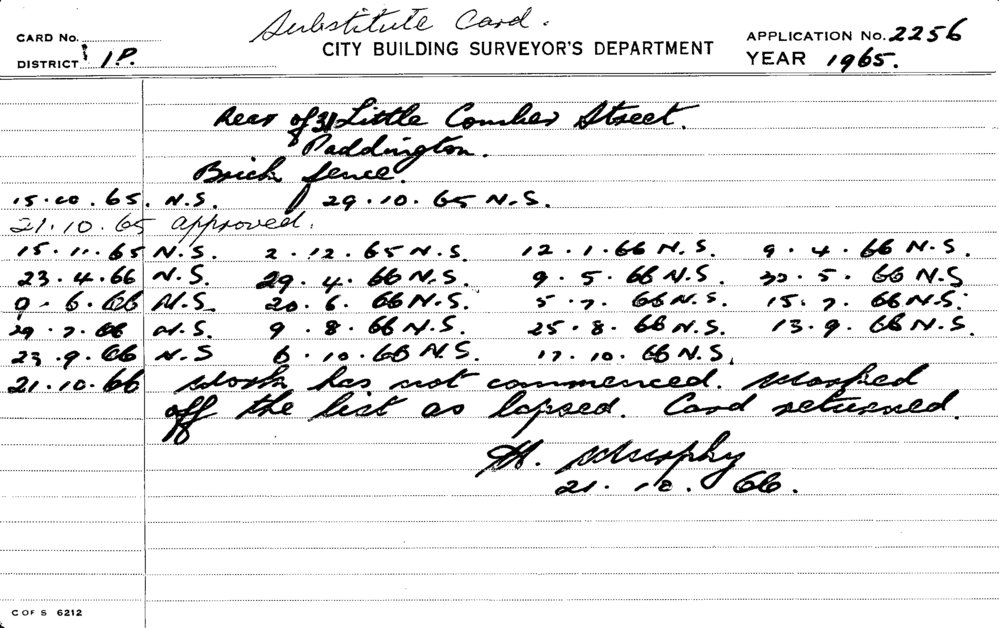 Substitute Card.
CARD No.
CITY BUILDING SURVEYOR'S DEPARTMENT
APPLICATION No. 2256
DISTRICT 1P.
YEAR 1965.
Rear of 31 Little Comber Street.
Paddington.
Brick fence.
15.10.65. N.S. 29.10.65 N.S.
21.10.65 approved.
15.11.65 N.S. 2.12.65 N.S. 12.1.66 N.S. 9.4.66 N.S.
23.4.66 N.S. 29.4.66 N.S. 9.5.66 N.S. 30.5.66 N.S.
9.6.66 N.S. 20.6.66 N.S. 5.7.66 N.S. 15.7.66 N.S.
29.7.66 N.S. 9.8.66 N.S. 25.8.66 N.S. 13.9.66 N.S.
23.9.66 N.S 6.10.66 N.S. 17.10.66 N.S.
21.10.66 Work has not commenced. Marked
off the list as lapsed. Card returned.
H. Murphy
21.10.66.
C OF S 6212